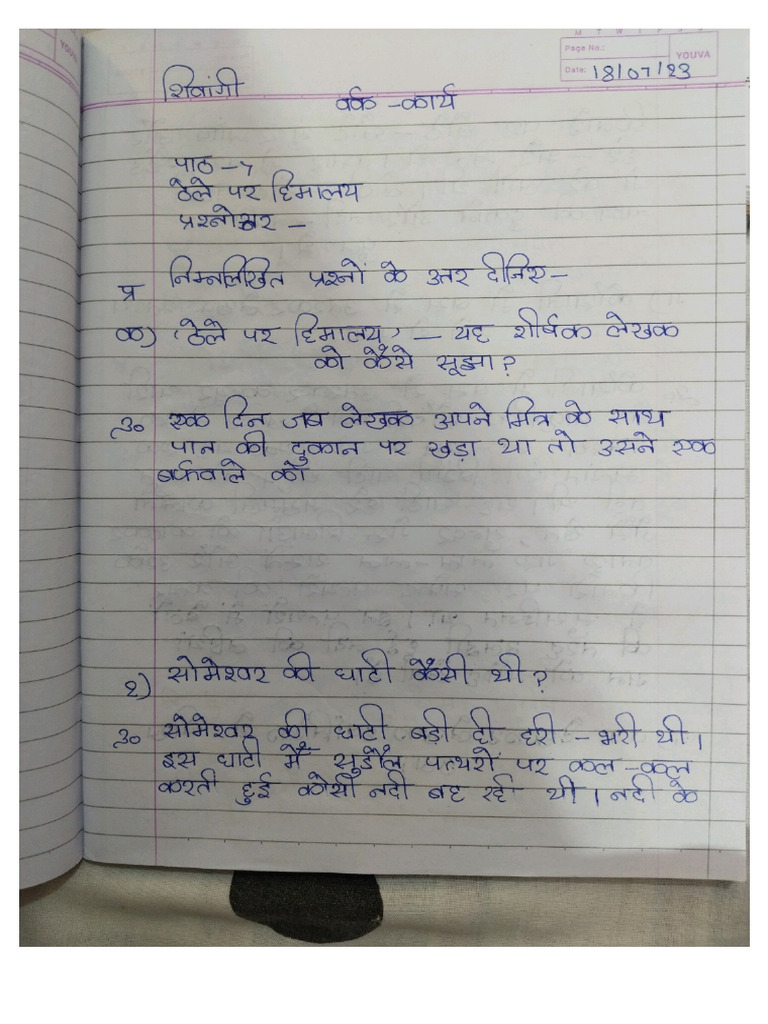 YOUVA
M T W T F S S
Page No.:
YOUVA
Date: 18/07/23
शिवांगी
वर्क - कार्य
पाठ - 7
ठेले पर हिमालय
प्रश्नोत्तर -
प्र निम्नलिखित प्रश्नों के उत्तर दीजिए -
क) 'ठेले पर हिमालय' - यह शीर्षक लेखक
को कैसे सूझा?
उ० एक दिन जब लेखक अपने मित्र के साथ
पान की दुकान पर खड़ा था तो उसने एक
बर्फवाले को
२) सोमेश्वर की घाटी कैसी थी?
उ० सोमेश्वर की घाटी बड़ी ही हरी - भरी थी।
इस घाटी में सुडौल पत्थरों पर कल - कल
करती हुई कोसी नदी बह रही थी। नदी के